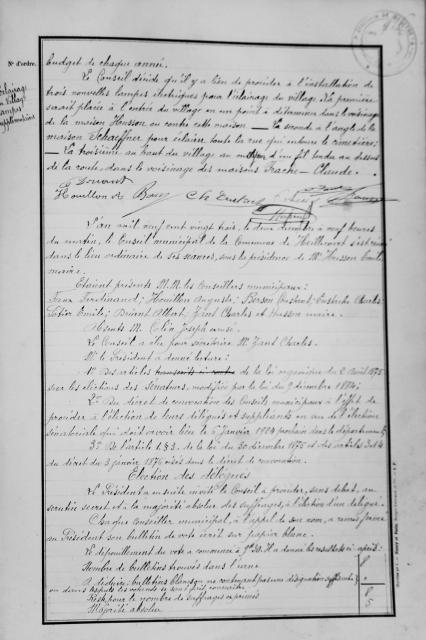 N° d'ordre.
budget de chaque année.
Éclairage
du Village
Lampes
supplémentaires
Le Conseil décide qu'il y a lieu de procéder à l'installation de
trois nouvelles lampes électriques pour l'éclairage du village. La première
serait placée à l'entrée du village en un point à déterminer dans le voisinage
de la maison Husson ou contre cette maison — La seconde à l'angle de la
maison Schaeffner pour éclairer toute la rue que entoure le cimetière;
— La troisième au haut du village au moyen d'un fil tendu au dessus
de la route, dans le voisinage des maisons Claude.
Houillon
L'an mil neuf cent vingt trois, le deux décembre à neuf heures
du matin, le Conseil municipal de la Commune de s'est réuni
dans le lieu ordinaire de ses séances, sous la présidence de Mr Husson Emile
maire.
Etaient présents M.M. les Conseillers municipaux:
Ferdinand; Houillon Auguste; Constant; Eustache Charles;
Emile; Albert; Zant Charles et Husson maire.
Absents M. Colin Joseph excusé.
Le Conseil a élu pour secrétaire Mr Zant Charles.
Mr le Président a donné lecture:
1° Des articles de la loi organique du 2 Août 1875
sur les élections des Sénateurs, modifiée par la loi du 9 décembre 1884;
2° Du décret de convocation des Conseils municipaux à l'effet de
procéder à l'élection de leurs délégués et suppléants en vue de l'élection
sénatoriale qui doit avoir lieu le 6 janvier 1924 prochain dans le département;
3° De l'article 1 § 3. de la loi du 30 décembre 1875 et des articles 3 et 4
du décret du 3 janvier 1876 visés dans le décret de convocation.
Election des délégués
Le Président a ensuite invité le Conseil à procéder, sans débat, au
scrutin secret et à la majorité absolue des suffrages, à l'élection d'un délégué.
Chaque Conseiller municipal, à l'appel de son nom, a remis fermé
au Président son bulletin de vote écrit sur papier blanc.
Le dépouillement du vote a commencé à 9h. Il a donné les résultats ci après:
Nombre de bulletins trouvés dans l'urne 8
A déduire: bulletins blancs ou ne contenant pas une désignation suffisante
ou dans lesquels les votants se sont fait connaître
Reste pour le nombre de suffrages exprimés 8
Majorité absolue 5